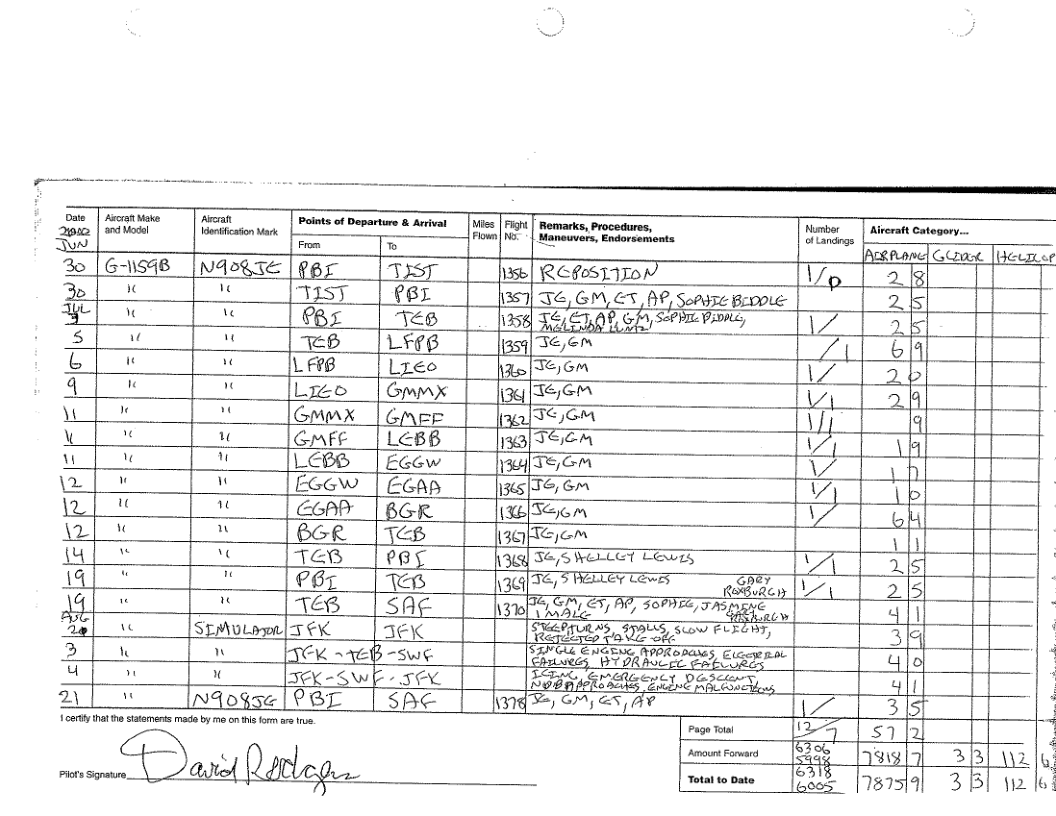 Date Aircraft Make and Model Aircraft Identification Mark Points of Departure & Arrival From To Miles Flown Flight No. Remarks, Procedures, Maneuvers, Endorsements Number of Landings Aircraft Category...
JUN AIRPLANE GLIDER HELICOP
30 G-1159B N908JE PBI TIST 1356 REPOSITION 1/0 2 8
30 " " TIST PBI 1357 JE, GM, ET, AP, SOPHIE BIDDLE 2 5
JUL 3 " " PBI TEB 1358 JE, ET, AP, GM, SOPHIE BIDDLE, 1/ 2 5
5 " " TEB LFPB 1359 JE, GM /1 6 9
6 " " LFPB LIEO 1360 JE, GM 1/ 2 0
9 " " LIEO GMMX 1361 JE, GM 1/1 2 9
11 " " GMMX GMFF 1362 JE, GM 1/1 9
11 " " GMFF LEBB 1363 JE, GM 1/1 1 9
11 " " LEBB EGGW 1364 JE, GM 1/ 1 7
12 " " EGGW EGAA 1365 JE, GM 1/1 1 0
12 " " EGAA BGR 1366 JE, GM 1/ 6 4
12 " " BGR TEB 1367 JE, GM 1 1
14 " " TEB PBI 1368 JE, SHELLEY LEWIS 1/1 2 5
19 " " PBI TEB 1369 JE, SHELLEY LEWIS GARY ROXBURGH 1/1 2 5
19 " " TEB SAF 1370 JE, GM, ET, AP, SOPHIE, JASMINE 4 1
1 MALE GARY ROXBURGH
AUG " SIMULATOR JFK JFK STEEP TURNS, STALLS, SLOW FLIGHT, 3 9
REJECTED TAKE OFF
3 " " JFK-TEB-SWF SINGLE ENGINE APPROACHES, ELECTRICAL 4 0
FAILURES, HYDRAULIC FAILURES
4 " " JFK-SWF-JFK ICING, EMERGENCY DESCENT, 4 1
APPROACHES, ENGINE MALFUNCTIONS
21 " N908JE PBI SAF 1378 JE, GM, ET, AP 1/ 3 5
I certify that the statements made by me on this form are true.
Page Total 12/7 57 2
Amount Forward 6306 5998 7818 7 3 3 112 6
Pilot's Signature David Rodgers
Total to Date 6318 6005 7875 9 3 3 112 6